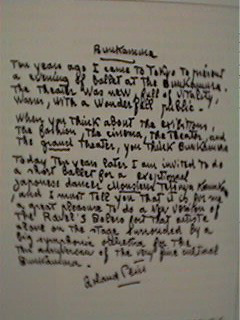 BunKamura
Ten years ago I came to Tokyo to present
a evening of ballet at the BunKamura.
The theater was new, full of vitality,
warm, with a wonderfull public.
When you think about the exhibitions,
the fashion, the cinema, the theater, and
the grand theater, you think BunKamura
Today ten years later I am invited to do
a short ballet for a exeptional
Japonese dancer Monsieur Tetsuya Kumakawa
, and I must tell you that it is for me
a great pleasure to do a new version of
the Ravel's Bolero for that artiste
alone on the stage surrounded by a
big symphonic orchestra for the
ten anniversary of the very fine cultural
BunKamura.
Roland Petit